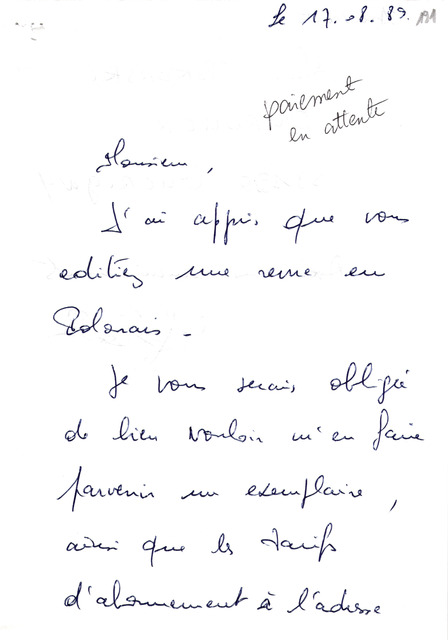 Le 17.08.89.
paiement
en attente
Monsieur,
J'ai appris que vous
editiez une revue en
Polonais -
Je vous serais obligée
de bien vouloir m'en faire
parvenir un exemplaire,
ainsi que les tarifs
d'abonnement à l'adresse